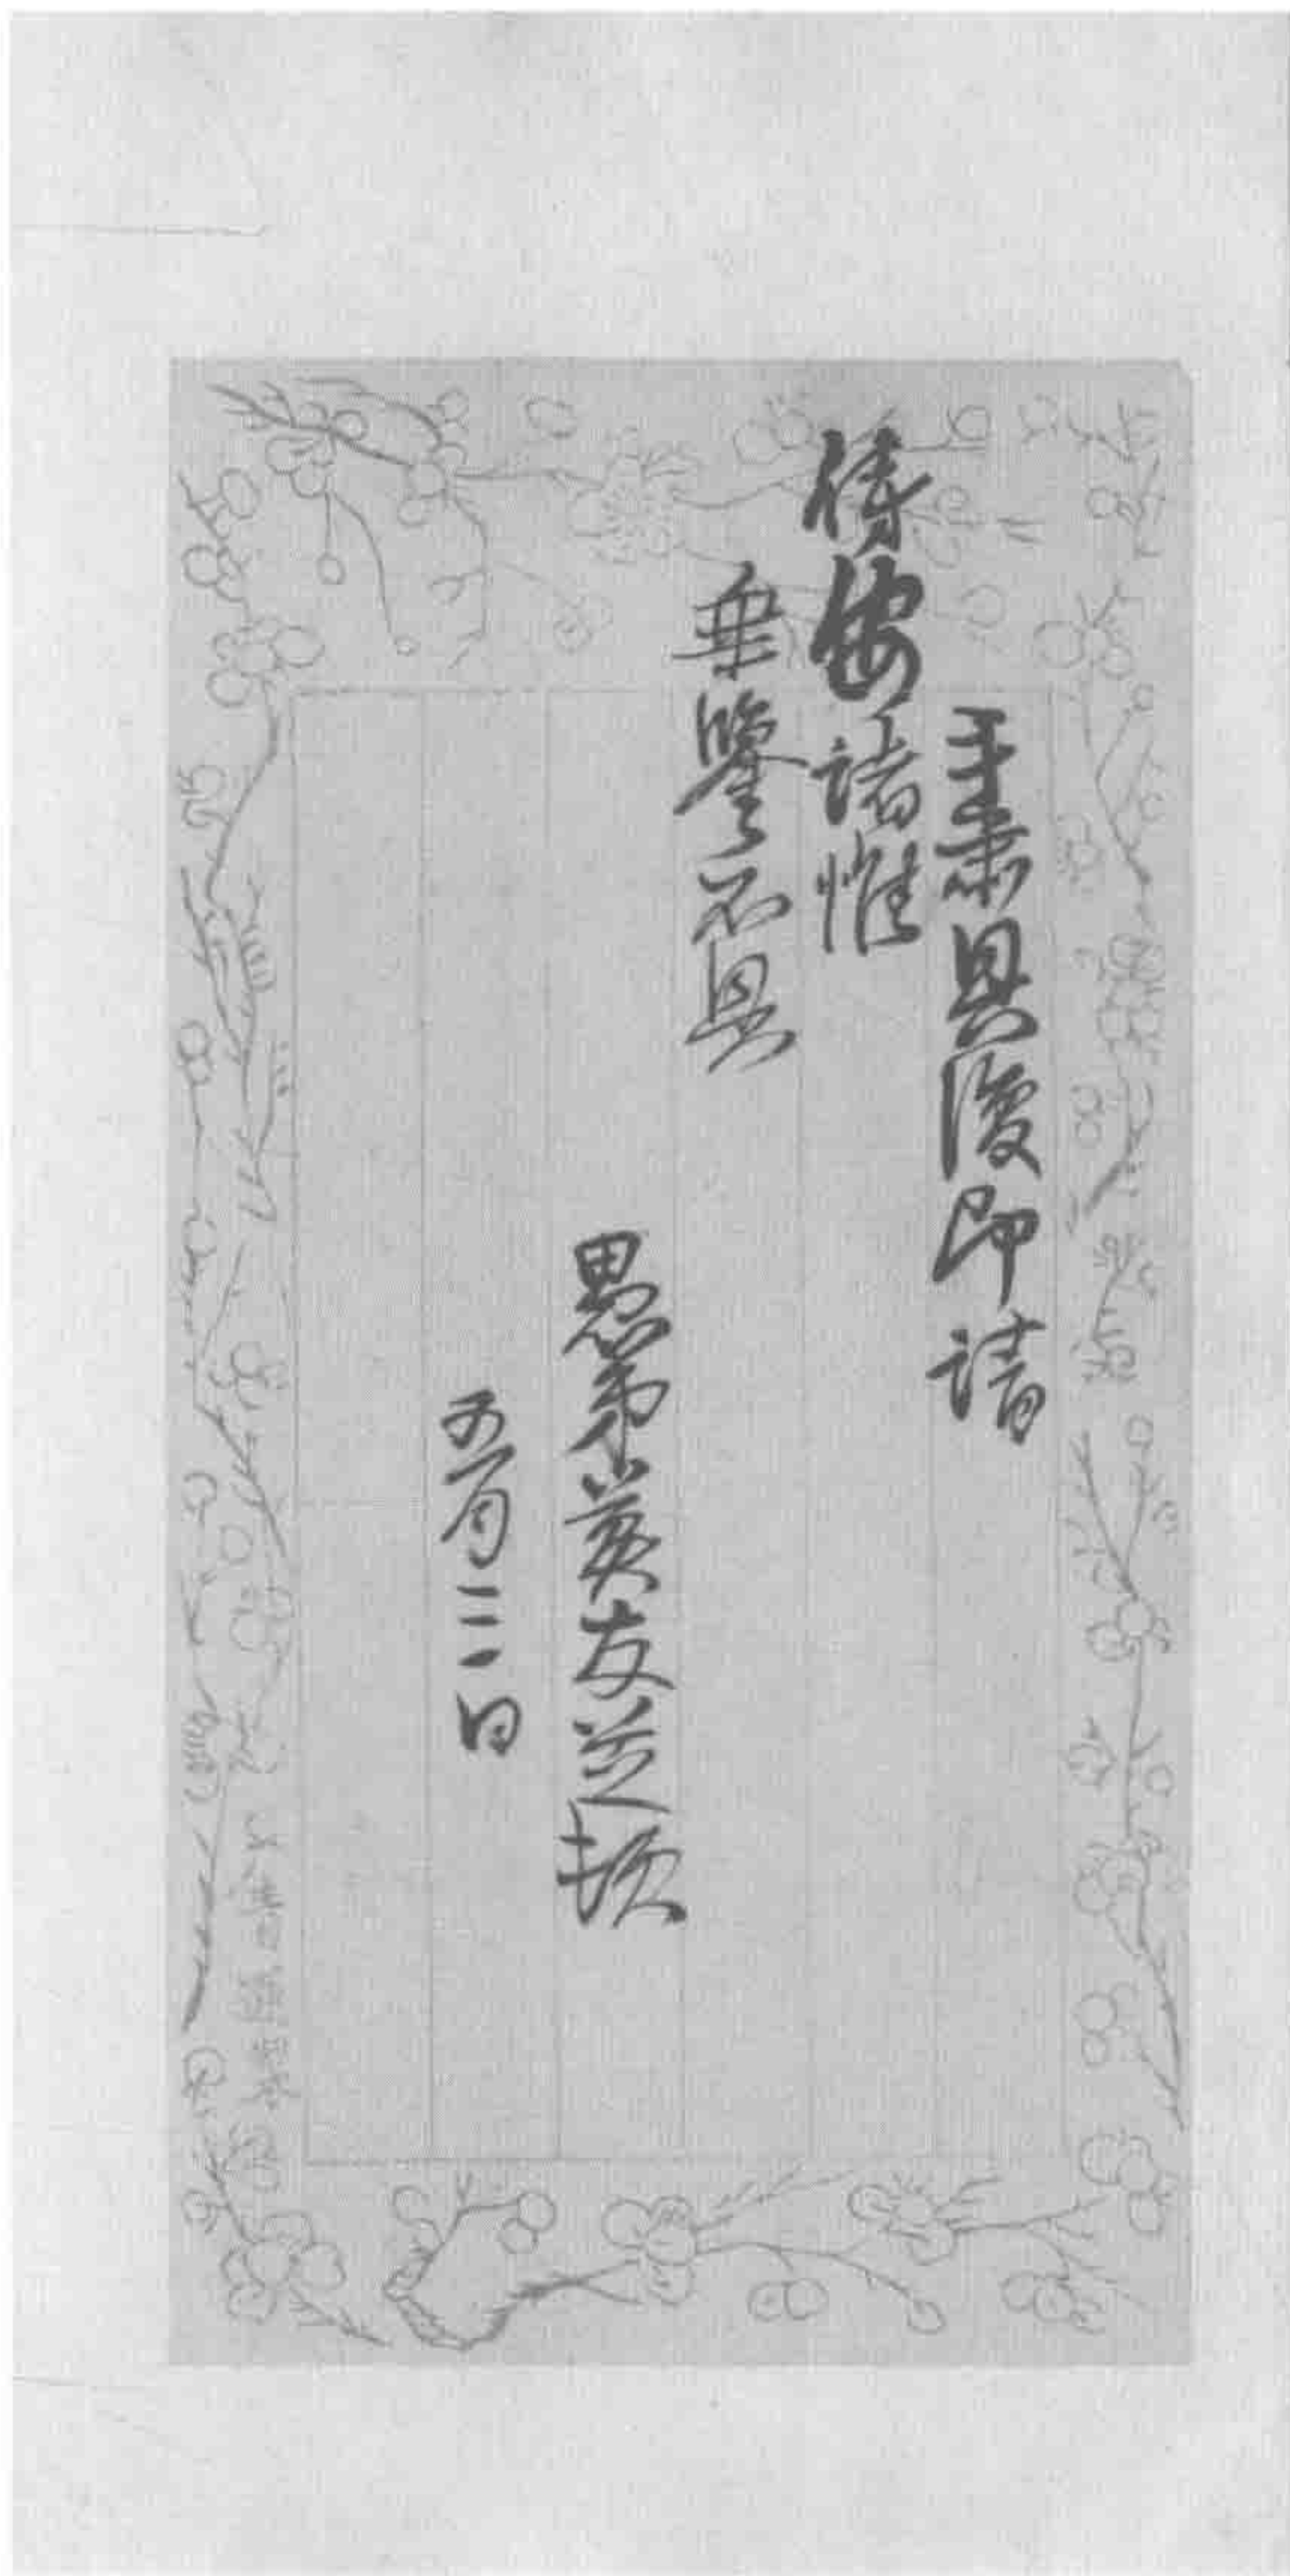 手肅具復即請
侍安諸惟
垂鑒不具
愚弟莫友芝頓
五月三日